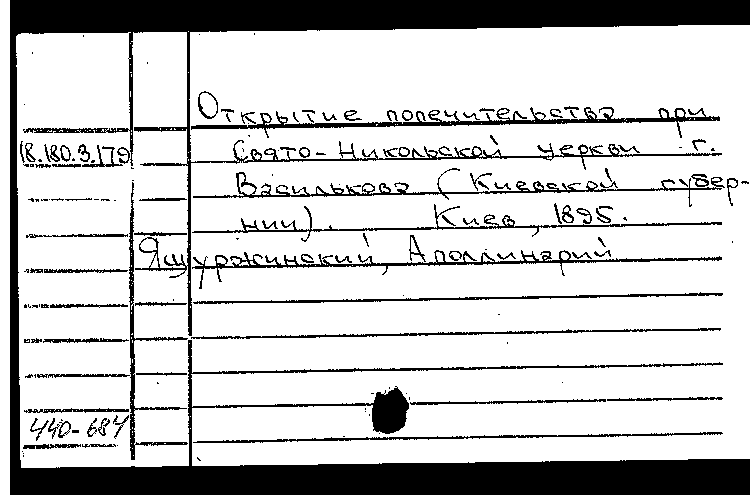 Открытие попечительства при
18.180.3.179
Свято-Никольской церкви г.
Василькова (Киевской губер-
нии). Киев, 1895.
Ящуржинский, Аполлинарий
440-684